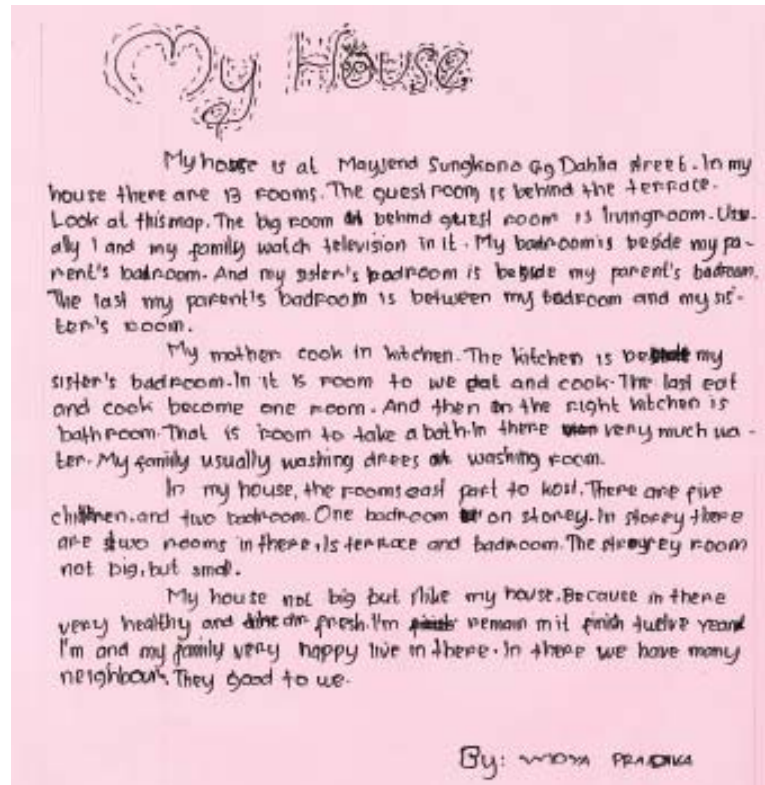 My House
My house is at Mayjend Sungkono Gg Dahlia street. In my
house there are 13 rooms. The guest room is behind the terrace.
Look at this map. The big room behind guest room is livingroom. Usu-
ally I and my family watch television in it. My badroom is beside my pa-
rent's badroom. And my sister's badroom is beside my parent's badroom.
The last my parent's badroom is between my badroom and my sis-
ter's room.
My mother cook in kitchen. The kitchen is beside my
sister's badroom. In it is room to we eat and cook. The last eat
and cook become one room. And then on the right kitchen is
bathroom. That is room to take a bath. In there very much wa-
ter. My family usually washing drees at washing room.
In my house, the rooms east part to kost. There are five
children, and two badroom. One badroom on storey. In storey there
are two rooms in there, is terrace and badroom. The room
not big, but small.
My house not big but I like my house. Because in there
very healthy and air fresh. I'm remain in it finish twelve years
I'm and my family very happy live in there. In there we have many
neighbours. They good to we.
By: WIDYA PRADIKA